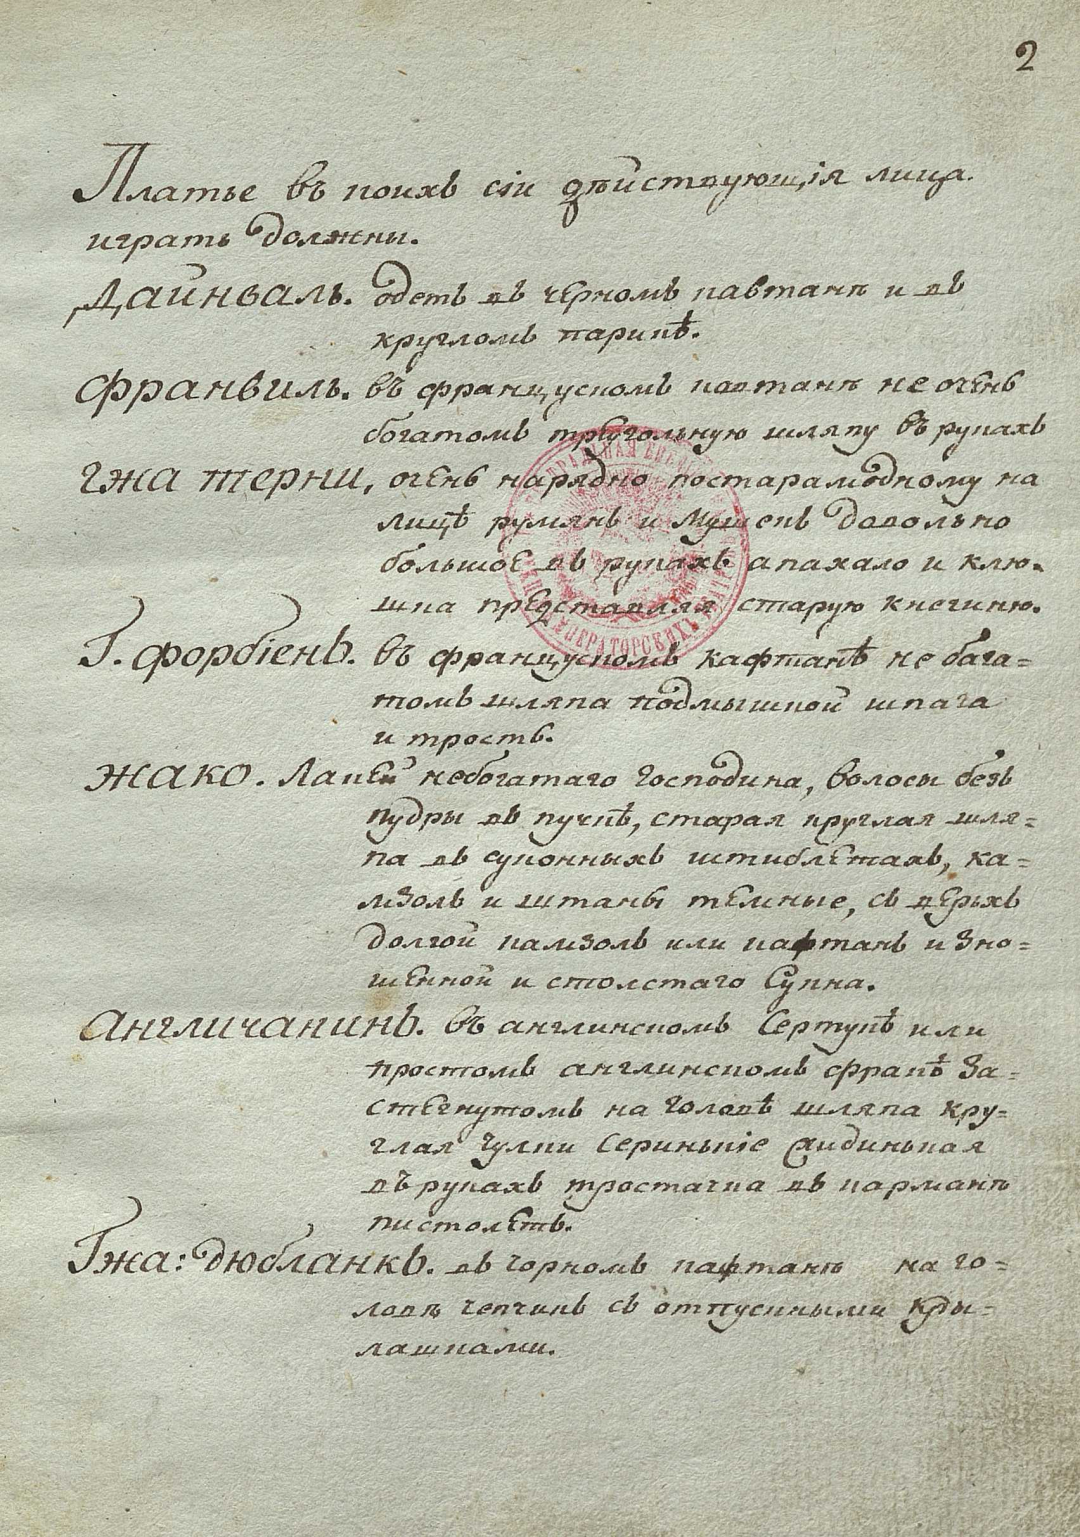 2
Платье въ коихъ сіи дѣйствующія лица
играть должны.
Дайнваль. одетъ въ черномъ кавтанѣ и въ
кругломъ парикѣ.
Франвиль. въ француcкомъ кавтанѣ не очень
богатомъ треугольную шляпу въ рукахъ
Гжа терни, очень нарядно постарамодному на
лицѣ румянъ и мушекъ довольно
большое въ рукахъ апахало и клю-
шка представляя старую княгиню.
Г. форбіенъ. въ француcкомъ кафтанѣ не бага=
томъ шляпа подмышкой шпага
и трость.
Жако. Лакей небогатаго господина, волосы безъ
пудры въ пучкѣ, старая круглая шля=
па въ суконныхъ штиблетахъ, ка=
мзолъ и штаны темные, съ верьхъ
долгой камзолъ или кафтанъ изно=
шенной и столстаго сукна.
Англичанинъ. въ англинскомъ сертукѣ или
простомъ англинскомъ фракѣ за=
стегнутомъ на головѣ шляпа кру=
глая чулки серинькіе
въ рукахъ тростачка въ карманѣ
пистолетъ.
Гжа: дюбланкъ. въ чорномъ кафтанѣ на го=
ловѣ чепчикъ съ отпускными кры=
лашками.